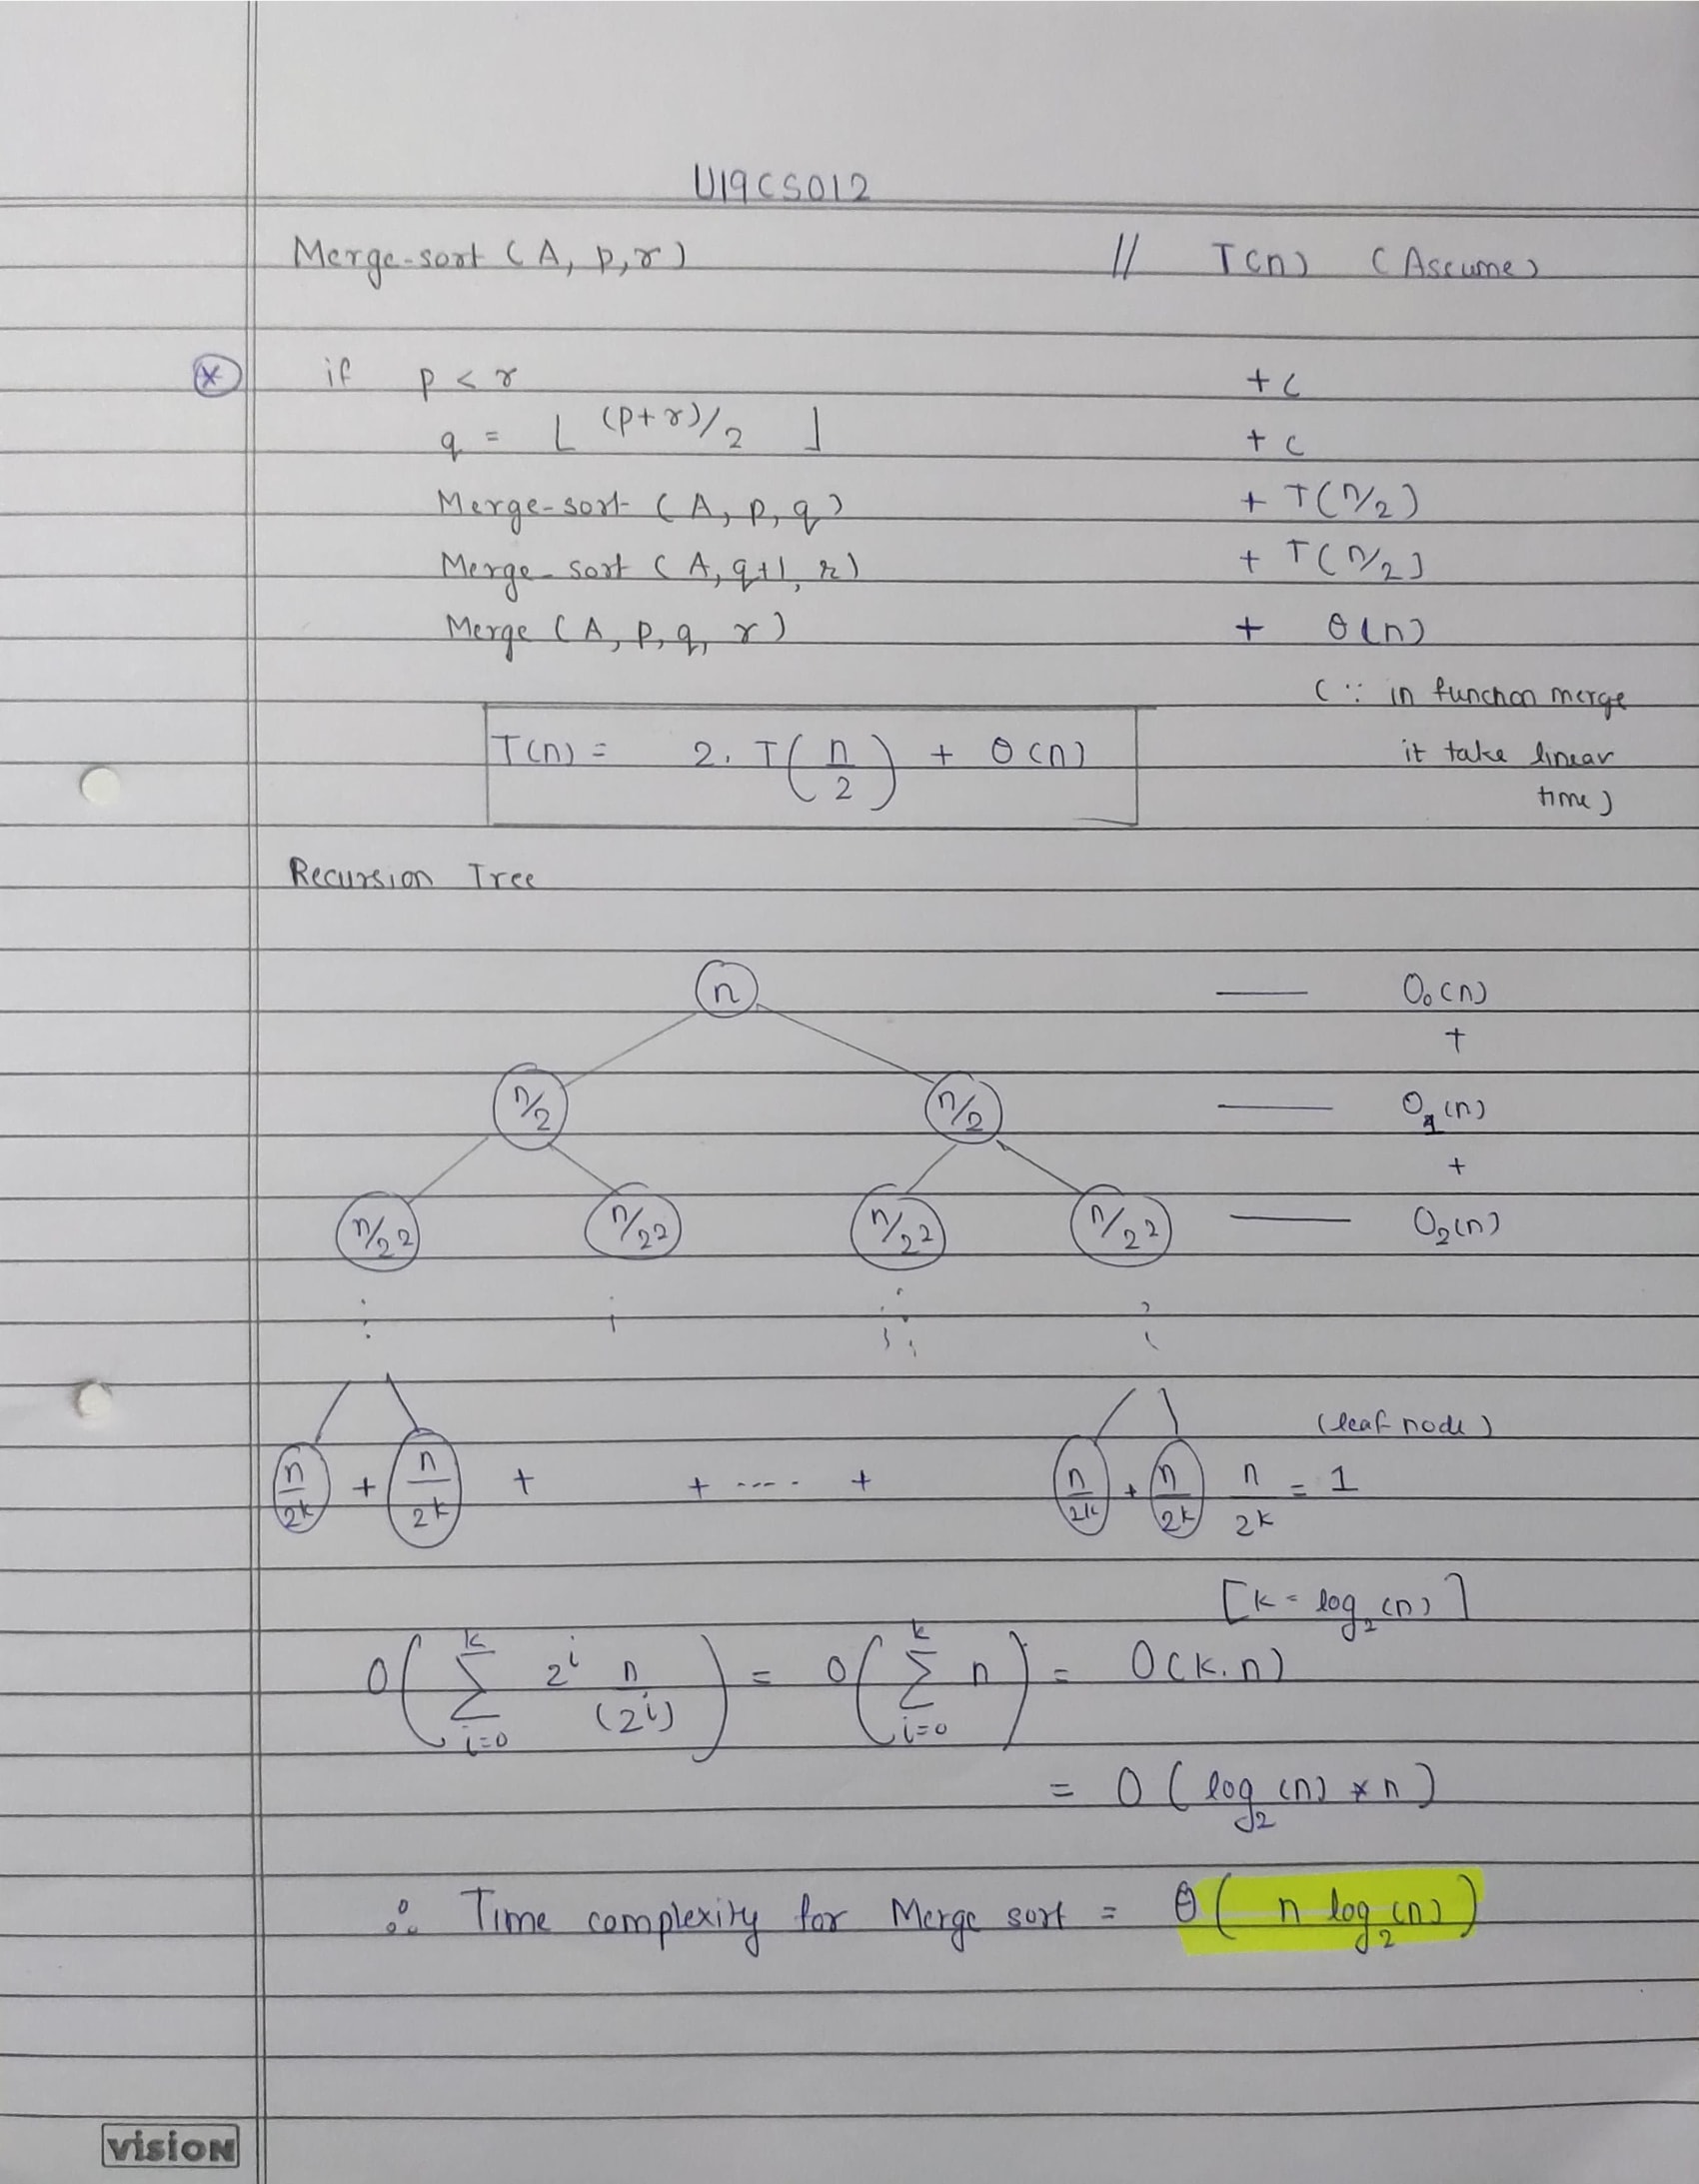 U19CS012
Merge-sort (A, p, r) // T(n) (Assume)
* if p < r + c
q = ⌊ (p+r)/2 ⌋ + c
Merge-sort (A, p, q) + T(n/2)
Merge-sort (A, q+1, r) + T(n/2)
Merge (A, p, q, r) + θ(n)
(∵ in function merge
T(n) = 2. T(n/2) + θ(n) it take linear
time)
Recursion Tree
n — O₀(n)
+
n/2 n/2 — O₁(n)
+
n/2² n/2² n/2² n/2² — O₂(n)
(leaf node)
n/2ᵏ + n/2ᵏ + + ---- + n/2ᵏ + n/2ᵏ n/2ᵏ = 1
[k = log₂(n)]
O( k Σ i=0 2ⁱ n/(2ⁱ) ) = O( k Σ i=0 n ) = O(k.n)
= O ( log₂(n) * n )
∴ Time complexity for Merge sort = θ( n log₂(n) )
vision